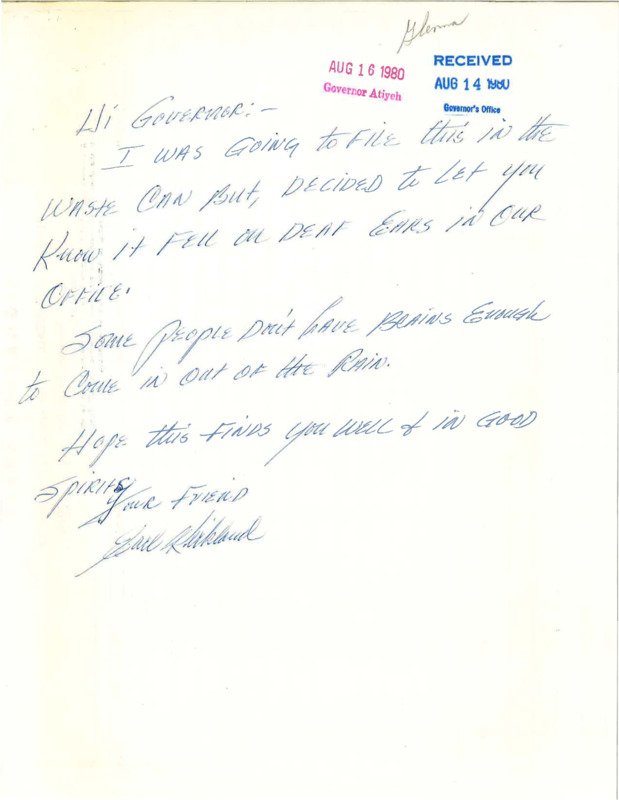 Glenna
AUG 16 1980
Governor Atiyeh
RECEIVED
AUG 14 1980
Governor's Office
Hi Governer:-
I was going to file this in the
waste can but, decided to let you
know it fell on deaf ears in our
office.
Some people don't have brains enough
to come in out of the rain.
Hope this finds you well & in good
spirits
Your friend
Kirkland